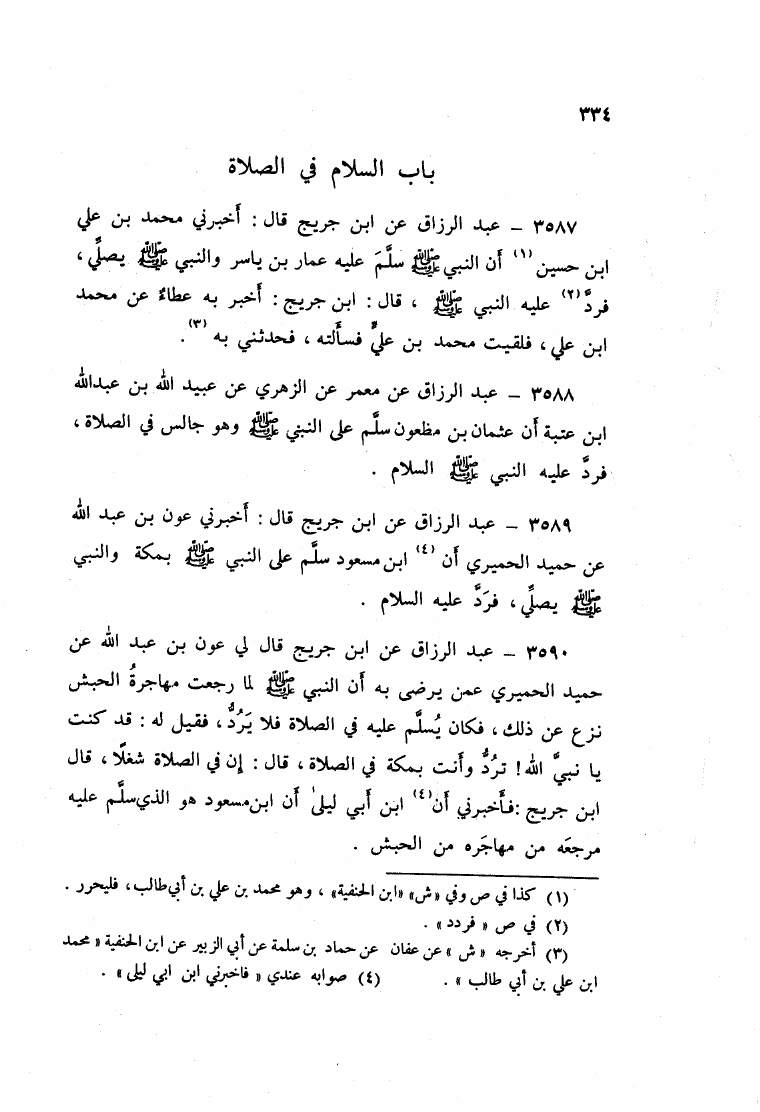 ٣٣٤
باب السلام في الصلاة
٣٥٨٧ – عبد الرزاق عن ابن جريج قال : أخبرني محمد بن علي
ابن حسين (١) أن النبي ﷺ سلَّمَ عليه عمار بن ياسر والنبي ﷺ يصلِّي ،
فردَّ (٢) عليه النبي ﷺ ، قال : ابن جريج : أخبر به عطاءٌ عن محمد
ابن علي ، فلقيت محمد بن عليٍّ فسأَلته ، فحدثني به (٣) .
٣٥٨٨ – عبد الرزاق عن معمر عن الزهري عن عبيد الله بن عبدالله
ابن عتبة أن عثمان بن مظعون سلَّم على النبي ﷺ وهو جالس في الصلاة ،
فردَّ عليه النبي ﷺ السلام .
٣٥٨٩ – عبد الرزاق عن ابن جريج قال : أخبرني عون بن عبد الله
عن حميد الحميري أن (٤) ابن مسعود سلَّم على النبي ﷺ بمكة والنبي
ﷺ يصلِّي ، فرَدَّ عليه السلام .
٣٥٩٠ – عبد الرزاق عن ابن جريج قال لي عون بن عبد الله عن
حميد الحميري عمن يرضى به أن النبي ﷺ لما رجعت مهاجرةُ الحبش
نزع عن ذلك ، فكان يُسلَّم عليه في الصلاة فلا يَرُدُّ ، فقيل له : قد كنت
يا نبيَّ الله ! تردُّ وأنت بمكة في الصلاة ، قال : إن في الصلاة شغلًا ، قال
ابن جريج : فأخبرني أن (٤) ابن أبي ليلىٰ أن ابن مسعود هو الذي سلَّم عليه
مرجعَه من مهاجَره من الحبش .
(١) كذا في ص وفي « ش » « ابن الحنفية » ، وهو محمد بن علي بن أبي طالب ، فليحرر .
(٢) في ص « فردد » .
(٣) أخرجه « ش » عن عفان عن حماد بن سلمة عن أبي الزبير عن ابن الحنفية « محمد
ابن علي بن أبي طالب » . (٤) صوابه عندي « فاخبرني ابن ابي ليلى » .